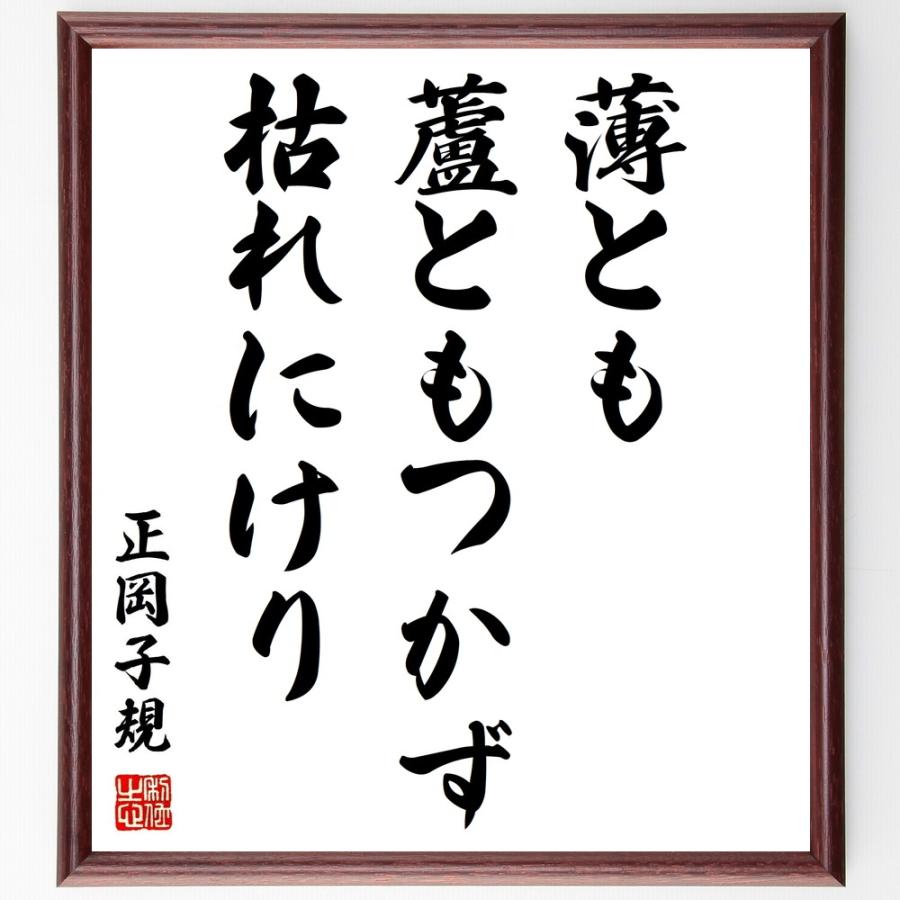 薄とも
蘆ともつかず
枯れにけり
正岡子規